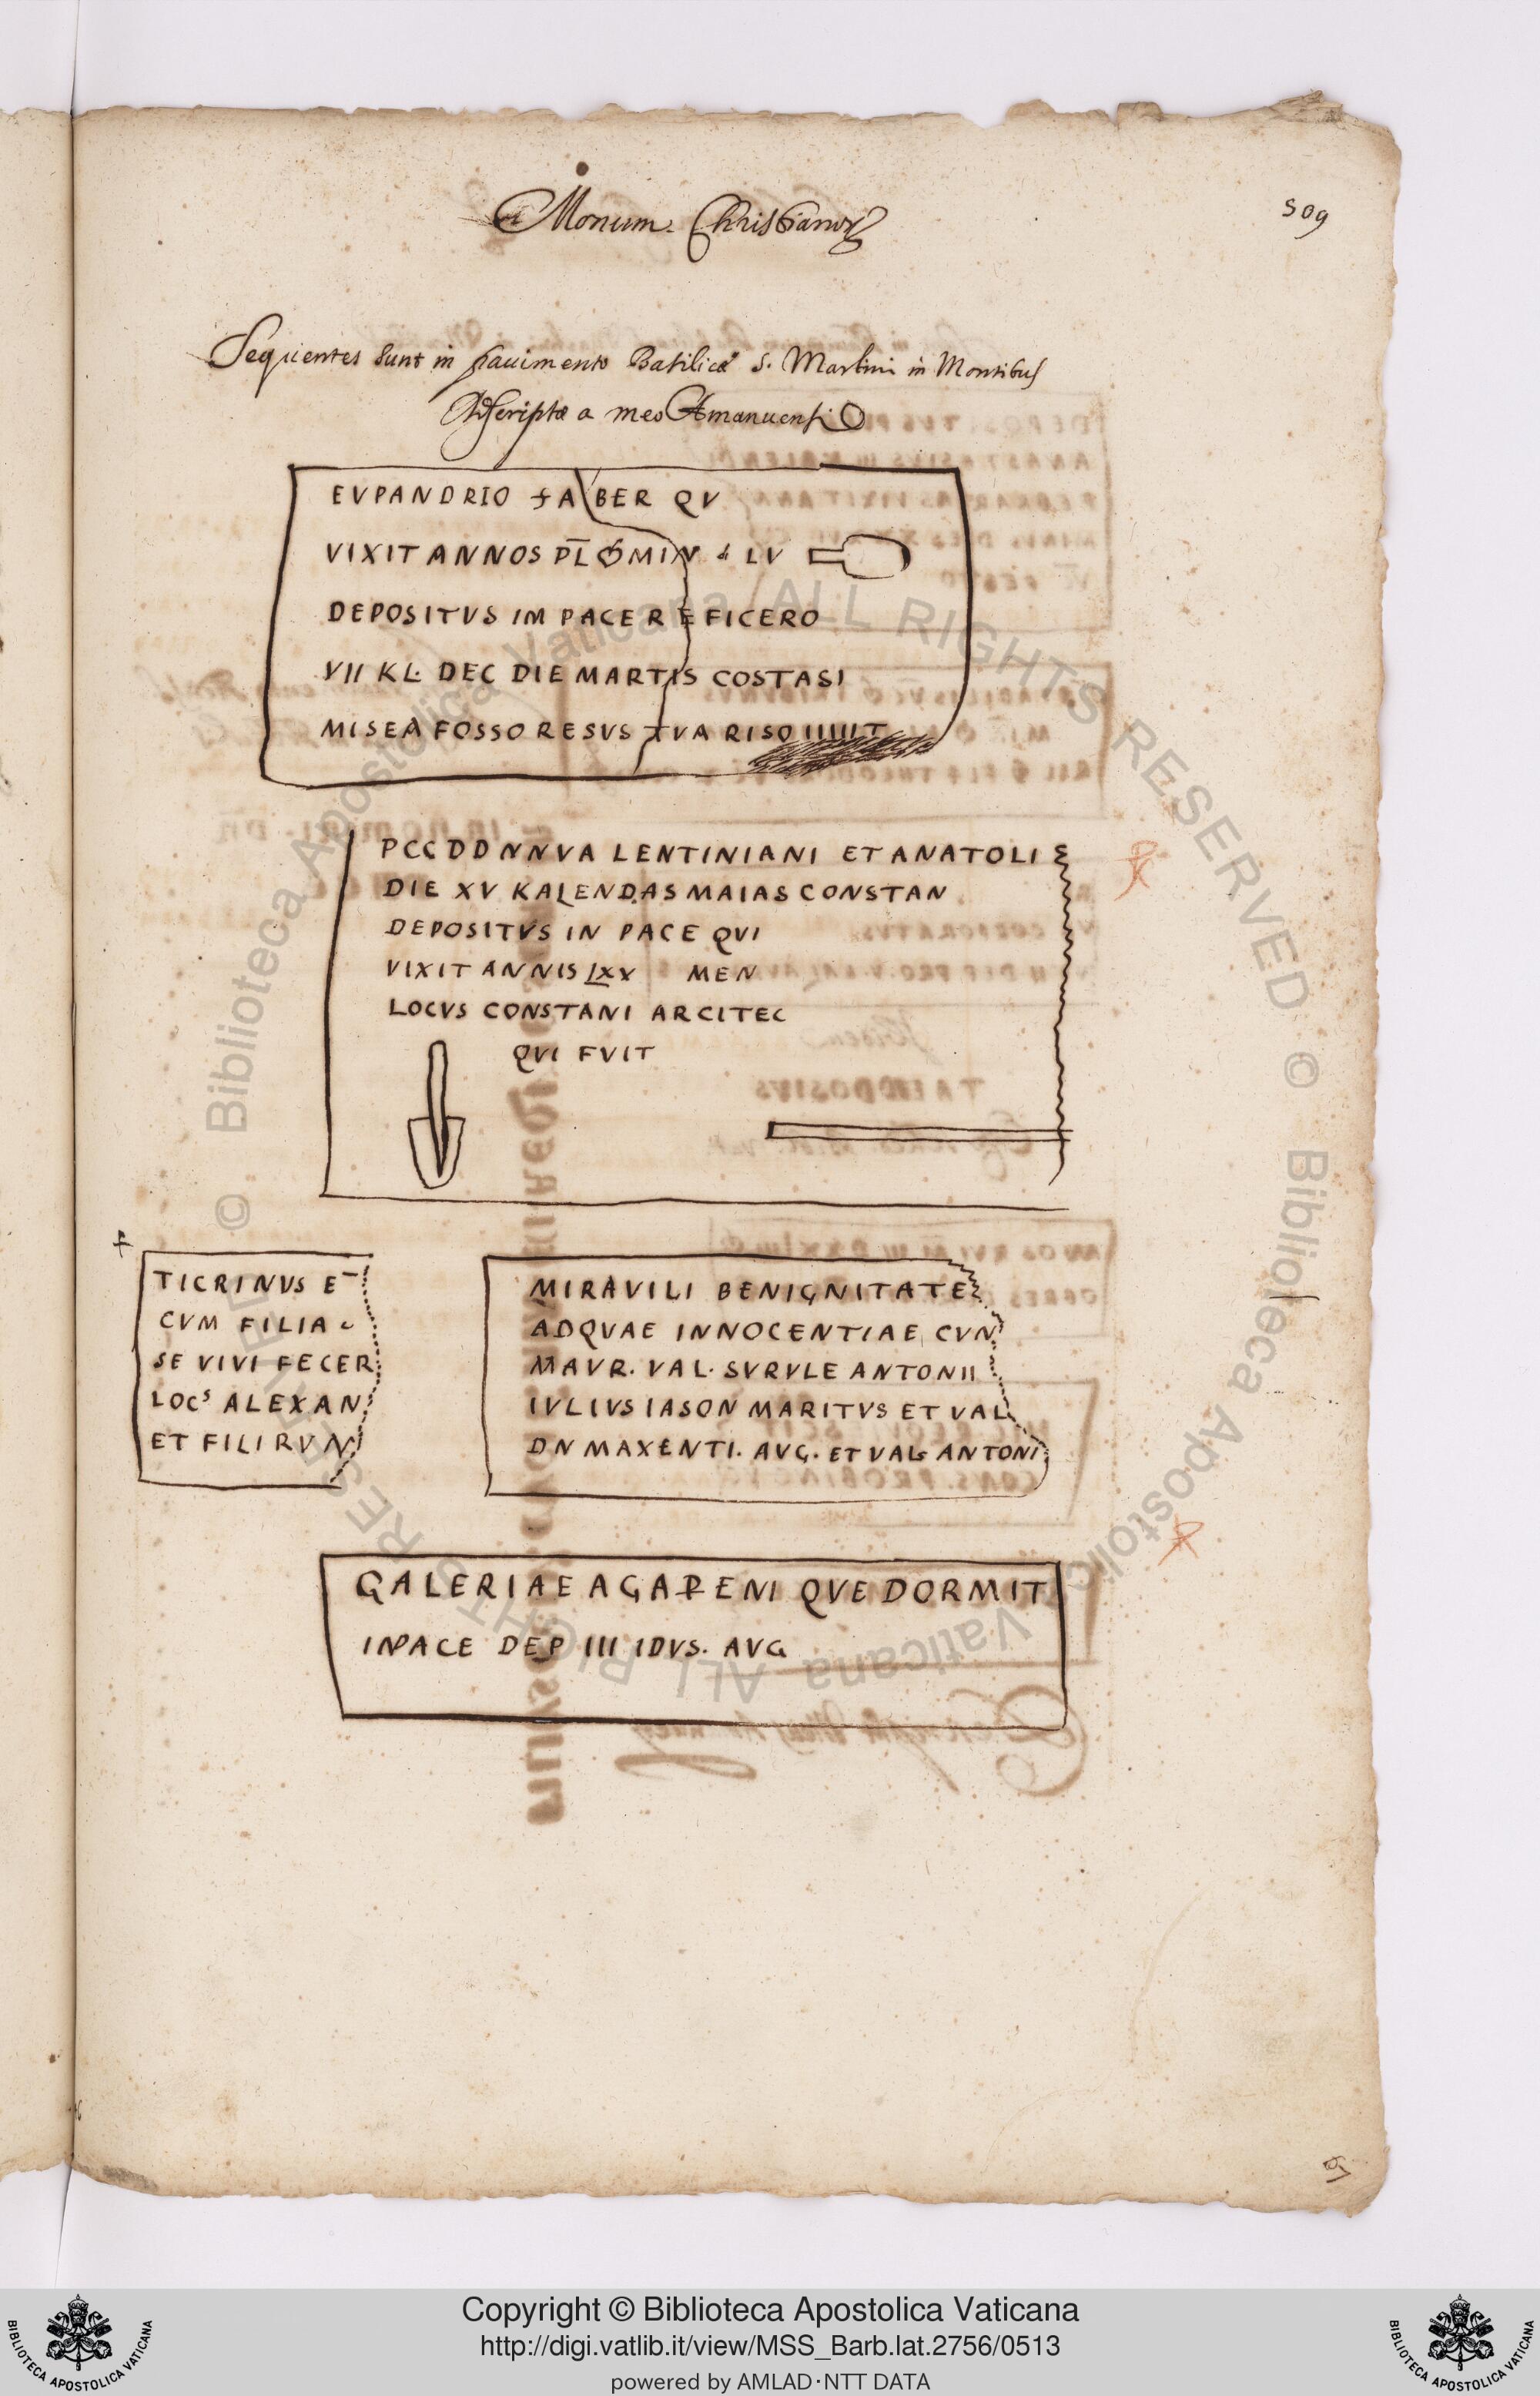 Monum. Christianor
509
Sequientes sunt in pauimento Basilicæ S. Martini in Montibus
Adscriptæ a meo Amanuensi
EVPANDRIO FABER QV
VIXIT ANNOS PL̅ O MINV S LV
DEPOSITVS IM PACE REFICERO
VII KL. DEC DIE MARTIS COSTASI
MISEA FOSSORESVS TVA RISO IIIIIT
PCC DD NN VA LENTINIANI ET ANATOLI
DIE XV KALENDAS MAIAS CONSTAN
DEPOSITVS IN PACE QVI
VIXIT ANNIS LXX MEN
LOCVS CONSTANI ARCITEC
QVI FVIT
TICRINVS ET
CVM FILIA
SE VIVI FECER
LOCˢ ALEXAN
ET FILIRVN
MIRAVILI BENIGNITATE
ADQVAE INNOCENTIAE CVN
MAVR. VAL. SVRVLE ANTONII
IVLIVS IASON MARITVS ET VAL
DN MAXENTI. AVG. ET VAL ANTONI
GALERIAE AGAPENI QVE DORMIT
INPACE DEP III IDVS. AVG
Copyright © Biblioteca Apostolica Vaticana
http://digi.vatlib.it/view/MSS_Barb.lat.2756/0513
powered by AMLAD·NTT DATA
BIBLIOTECA APOSTOLICA VATICANA
BIBLIOTECA APOSTOLICA VATICANA
© Biblioteca Apostolica Vaticana ALL RIGHTS RESERVED
© Biblioteca Apostolica Vaticana ALL RIGHTS RESERVED